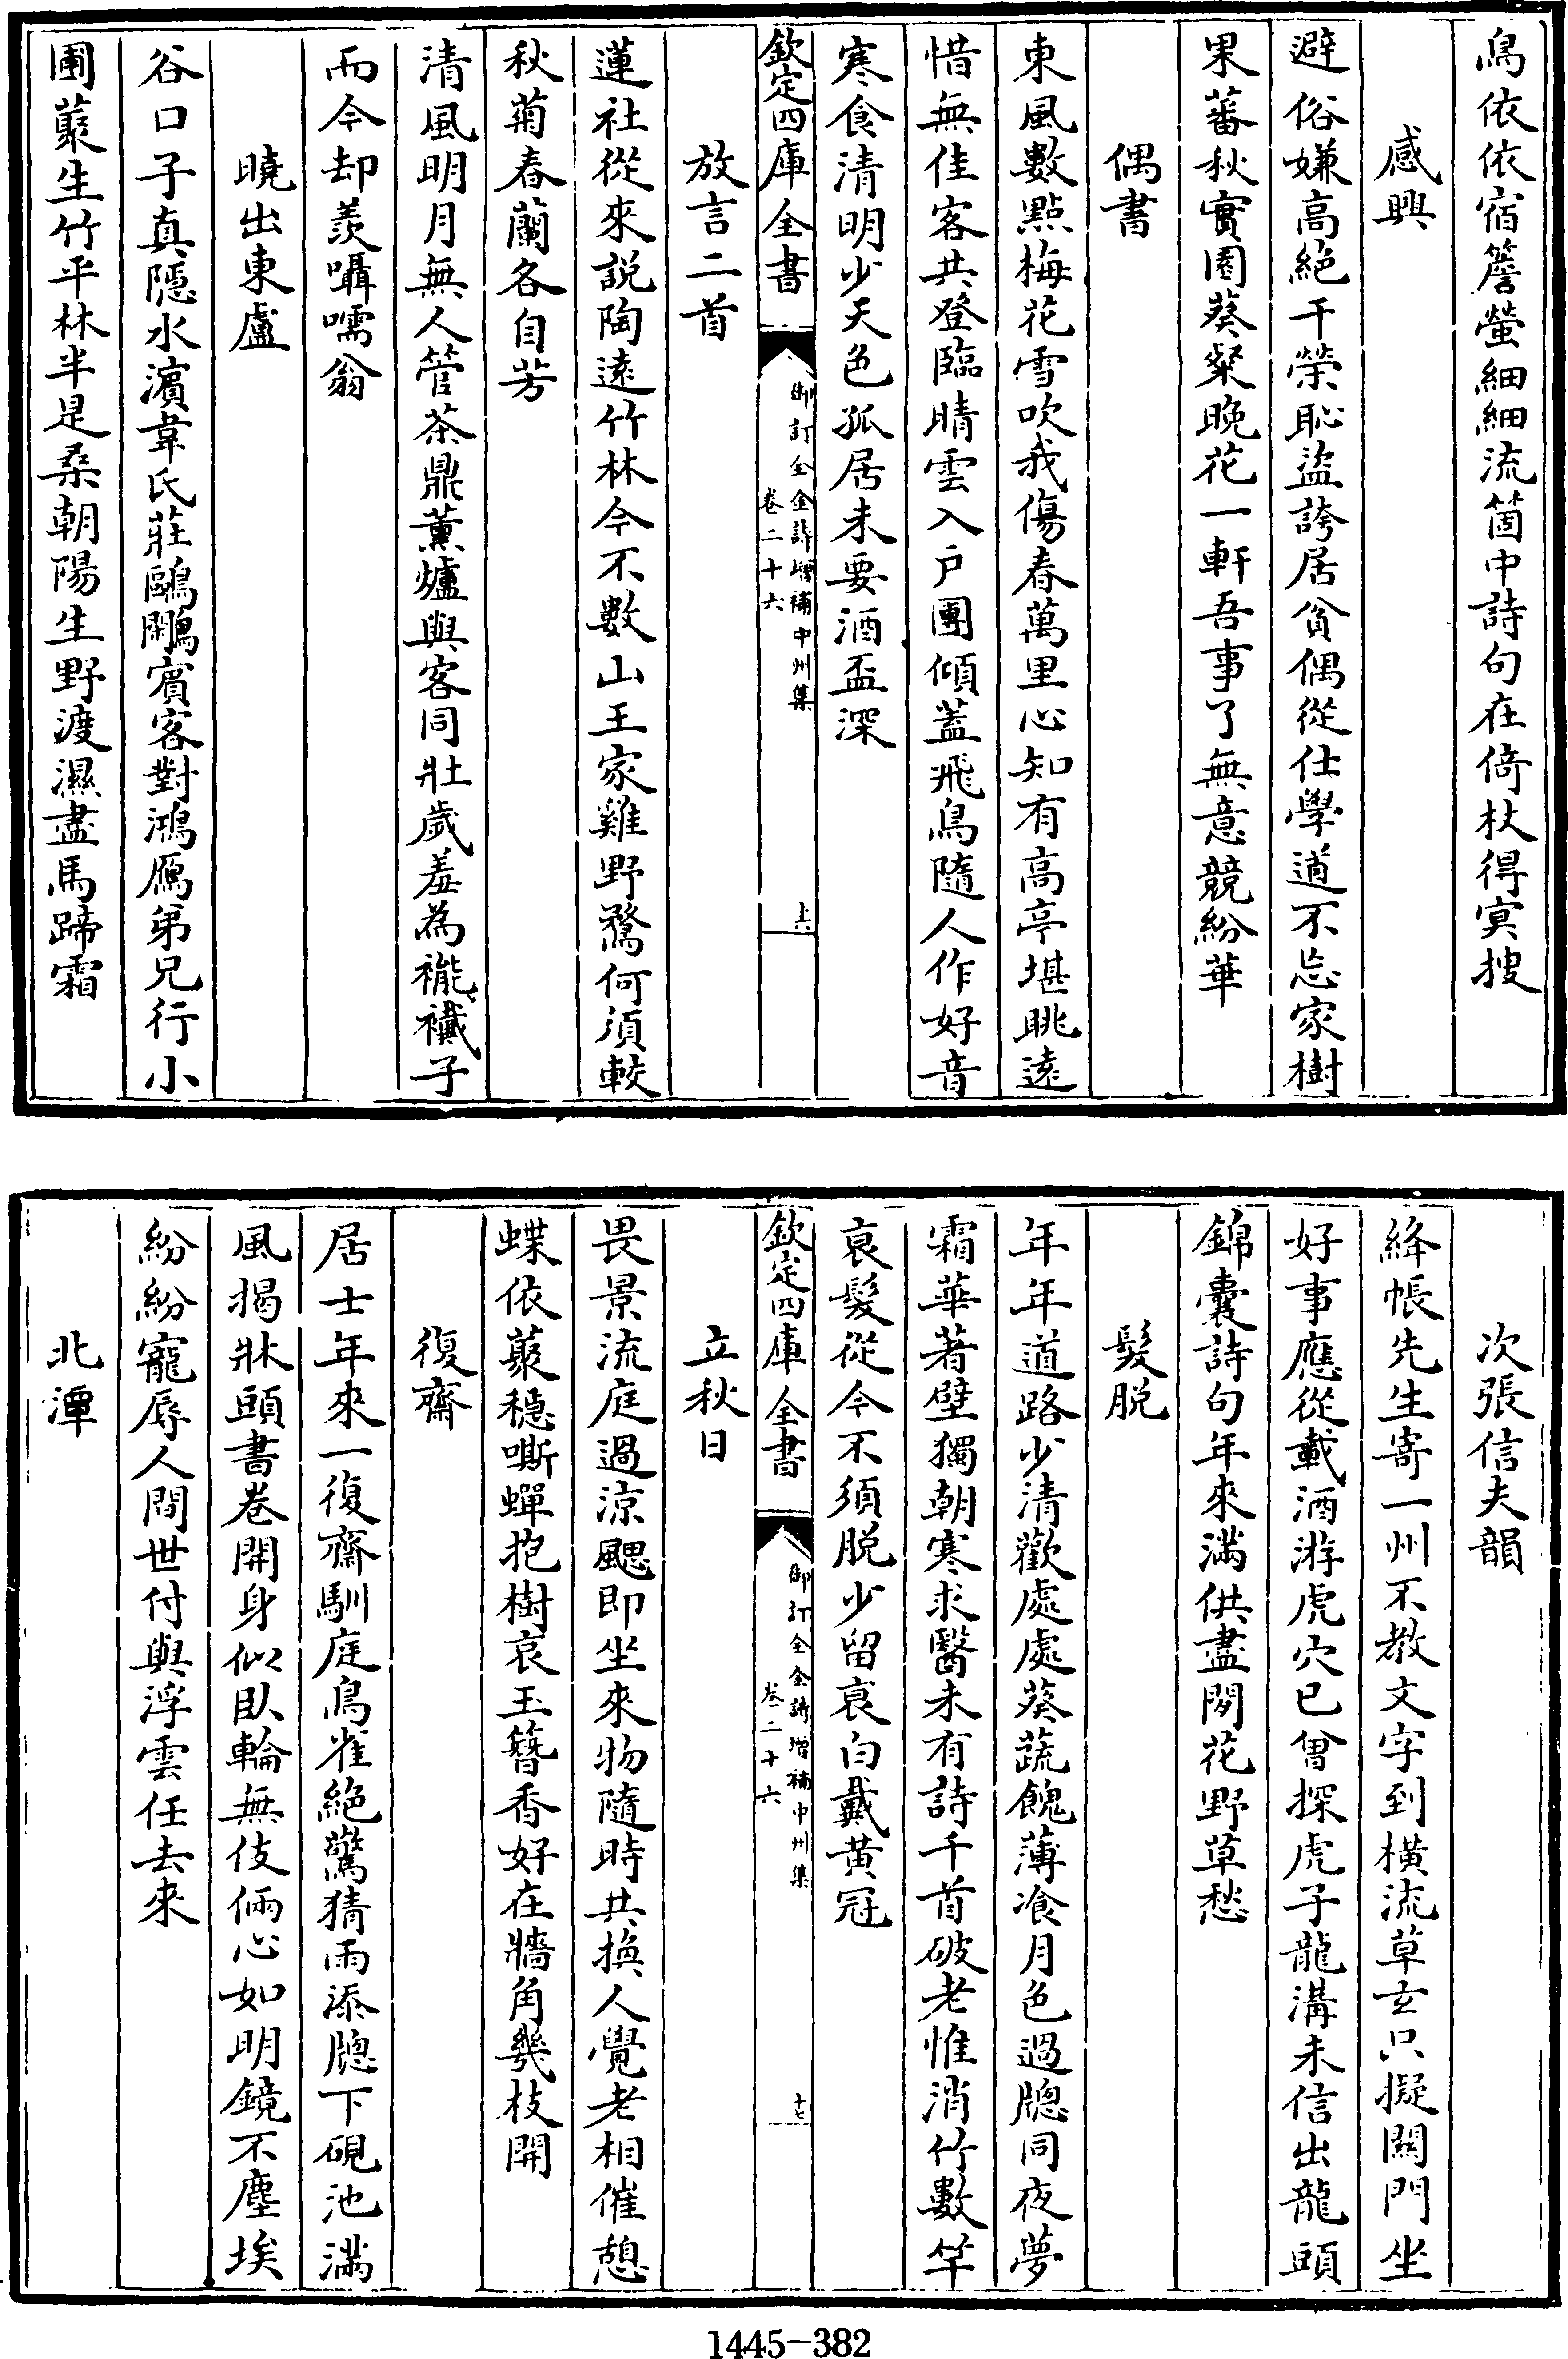 鳥依依宿簷螢細細流箇中詩句在倚杖得冥搜
感興
避俗嫌高絶干榮恥盜誇居貧偶從仕學道不忘家樹
果蕃秋實園葵粲晚花一軒吾事了無意競紛華
偶書
東風數點梅花雪吹我傷春萬里心知有高亭堪眺遠
惜無佳客共登臨晴雲入户團傾蓋飛鳥隨人作好音
寒食清明少天色孤居未要酒盃深
欽定四庫全書
御訂全金詩增補中州集
卷二十六
十六
放言二首
蓮社從來説陶遠竹林今不數山王家雞野鶩何須較
秋菊春蘭各自芳
清風明月無人管茶鼎薰爐與客同壯歲羞為褦襶子
而今却羨囁嚅翁
曉出東廬
谷口子真隱水濱韋氏莊鷗鷳賓客對鴻鴈弟兄行小
圃叢生竹平林半是桑朝陽生野渡濕盡馬蹄霜
次張信夫韻
絳帳先生寄一州不教文字到橫流草玄只擬關門坐
好事應從載酒游虎穴已曾探虎子龍溝未信出龍頭
錦囊詩句年來滿供盡閒花野草愁
髮脱
年年道路少清歡處處葵蔬餽薄飡月色過牕同夜夢
霜華著壁獨朝寒求醫未有詩千首破老惟消竹數竿
衰髮從今不須脱少留衰白戴黄冠
欽定四庫全書
御訂全金詩增補中州集
卷二十六
十七
立秋日
畏景流庭過涼颸即坐來物隨時共換人覺老相催憩
蝶依叢穩嘶蟬抱樹哀玉簪香好在牆角幾枝開
復齋
居士年來一復齋馴庭鳥雀絶驚猜雨添牕下硯池滿
風揭牀頭書卷開身似臥輪無伎倆心如明鏡不塵埃
紛紛寵辱人間世付與浮雲任去來
北潭
1445-382